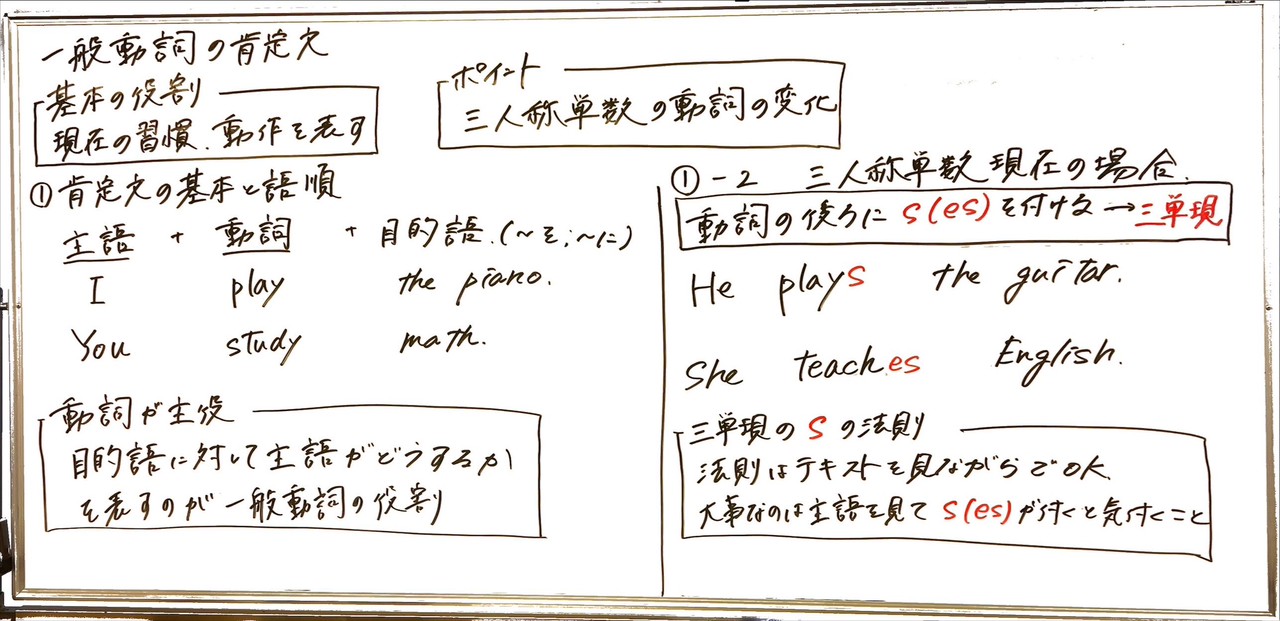 一般動詞の肯定文
基本の役割
現在の習慣、動作を表す
ポイント
三人称単数の動詞の変化
①肯定文の基本と語順
主語 + 動詞 + 目的語.(~を;~に)
I play the piano.
You study math.
動詞が主役
目的語に対して主語がどうするか
を表すのが一般動詞の役割
①-2 三人称単数現在の場合.
動詞の後ろに s(es) を付ける→三単現
He plays the guitar.
She teaches English.
三単現の s の法則
法則はテキストを見ながらでOK.
大事なのは主語を見て s(es) が付くと気付くこと